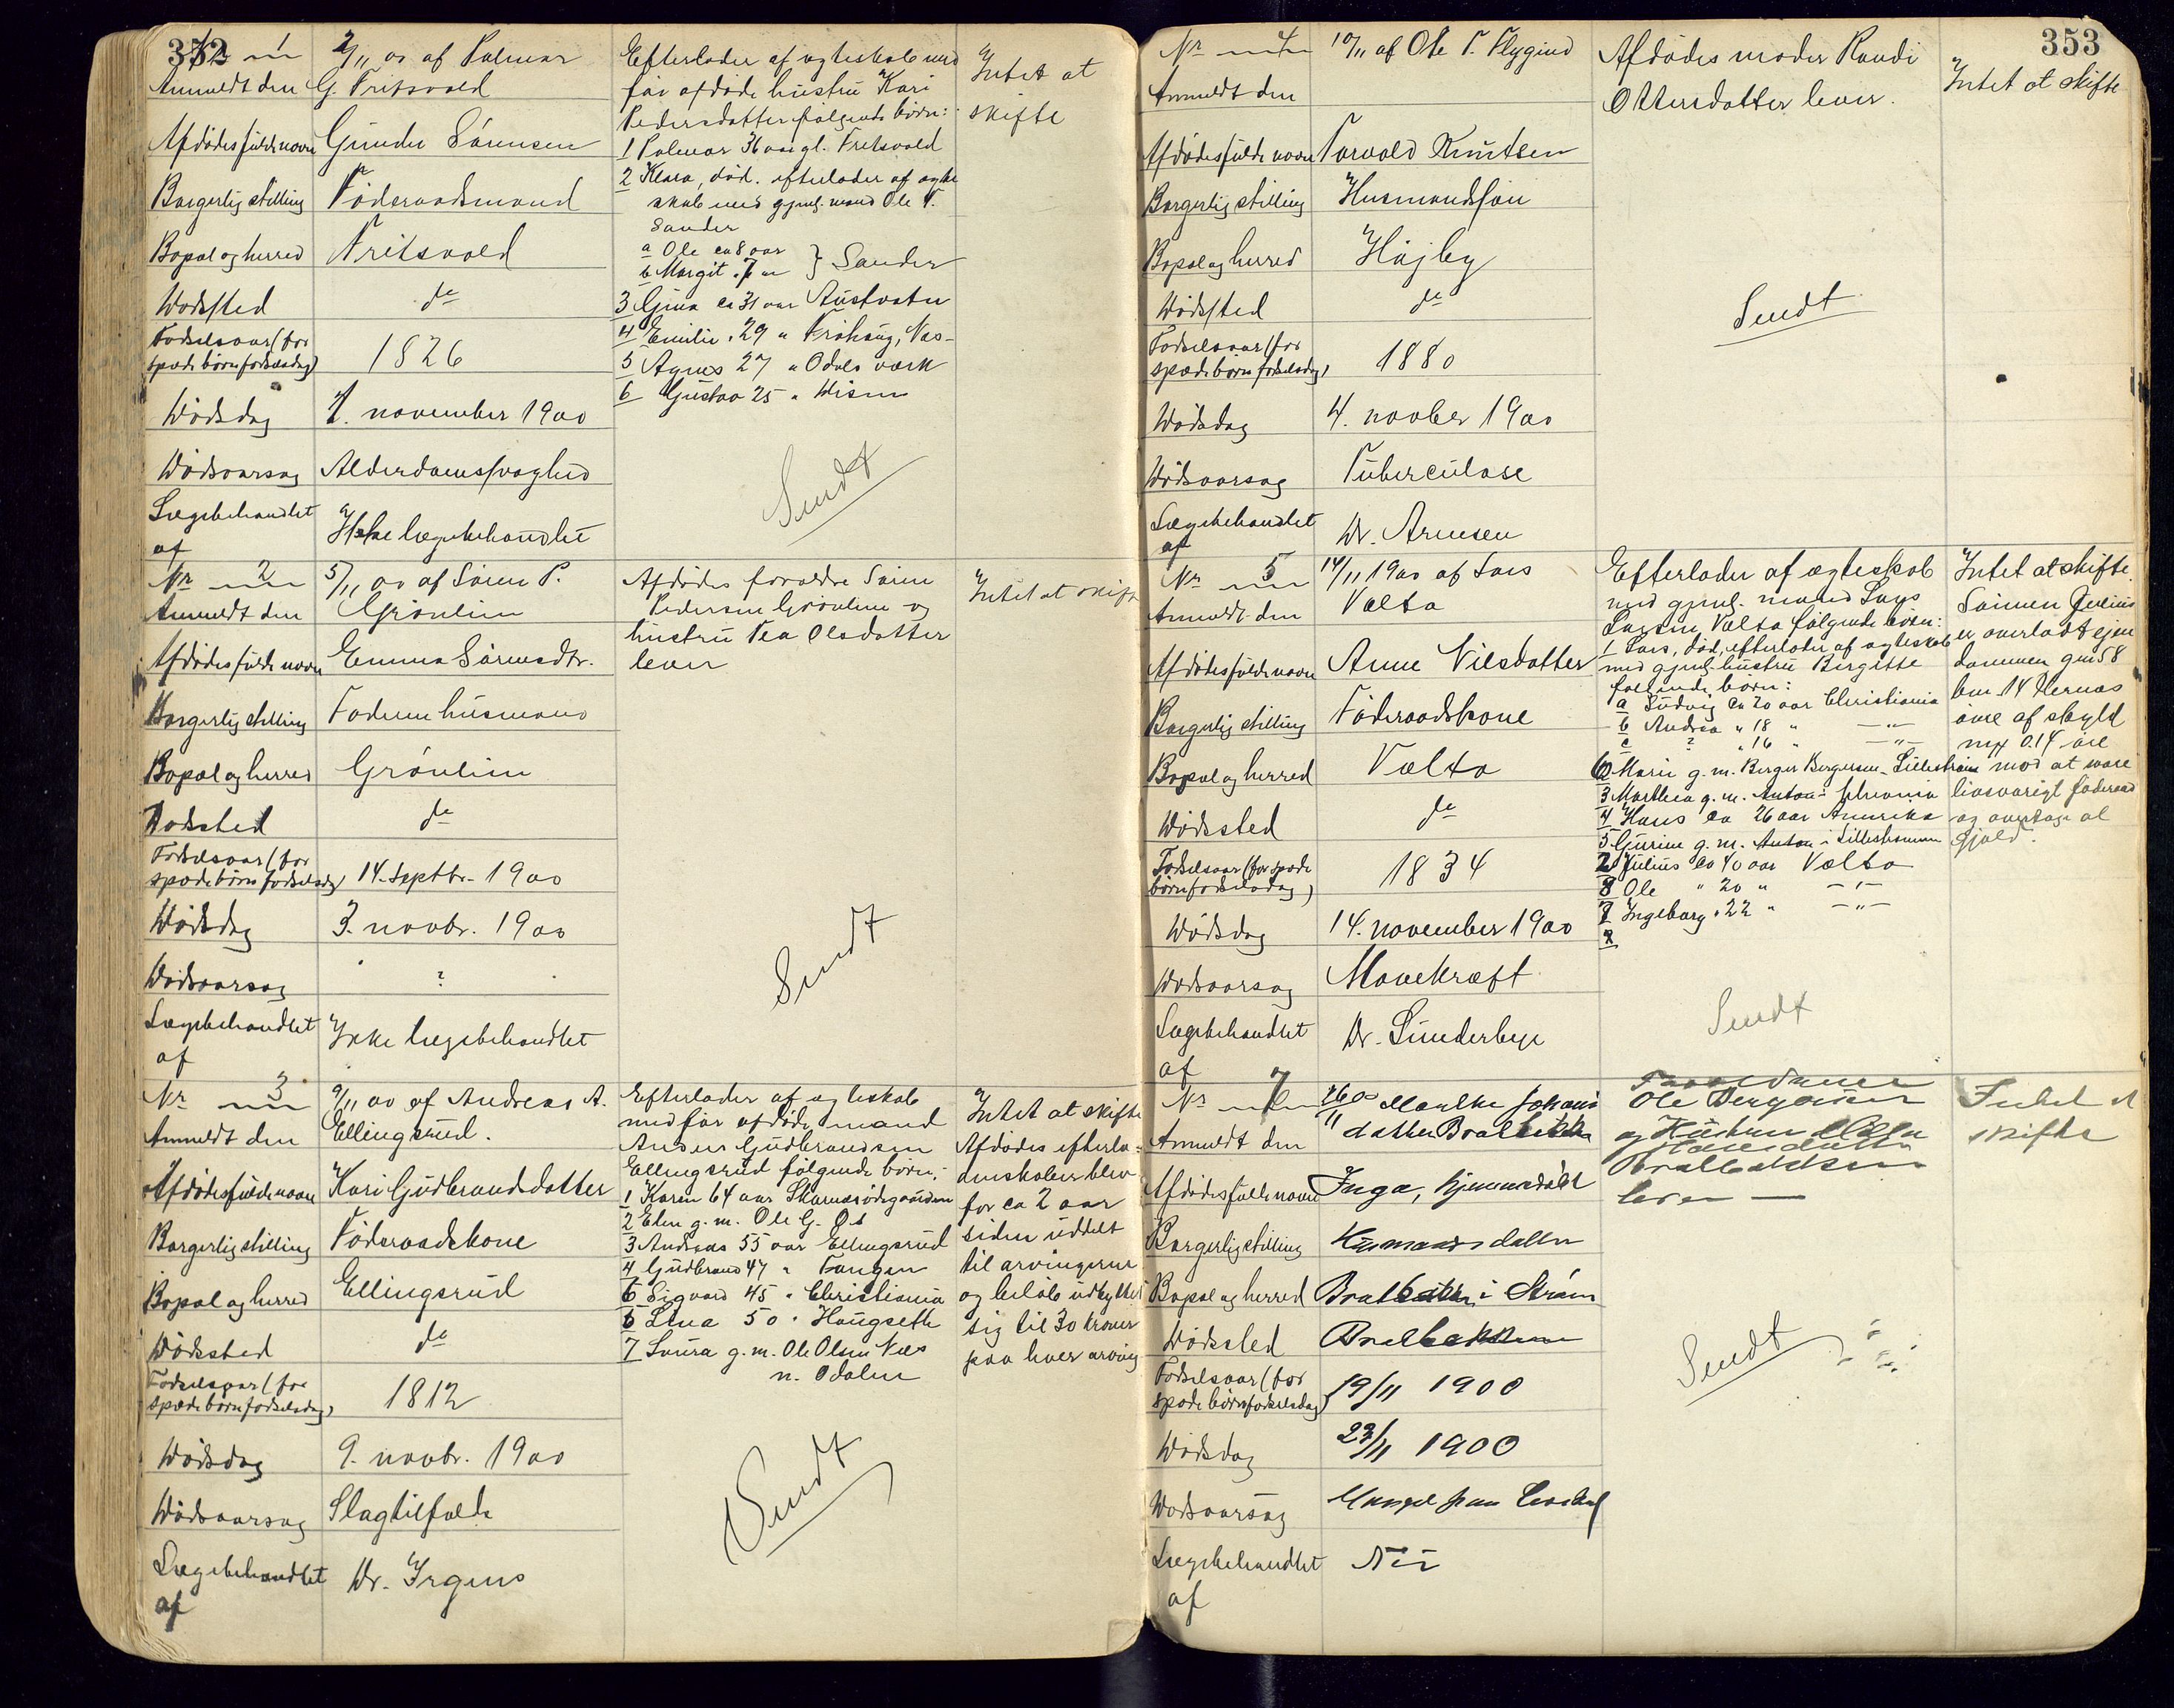 352
Nr 1
2/11 00 af Palmar
Anmeldt den
G. Fritsvold
Afdødes fulde navn
Gunder Sörensen
Borgerlig stilling
Föderaadsmand
Bopæl og herred
Fritsvold
Dødssted
do
Fødselsaar (for
spæde børn fødselsdag)
1826
Dødsdag
1. november 1900
Dødsaarsag
Alderdomssvaghed
Lægebehandlet
af
Ikke lægebehandlet
Efterlader af ægteskab med
før afdøde hustru Kari
Pedersdatter følgende børn:
1 Palmar 36 aar gl. Fritsvold
2 Klara, død. efterlader af ægte
skab med gjenl. mand Ole T.
Sander
a Ole ca 8 aar
b Margit " 7 "
} Sander
3 Gina ca 31 aar Austvatn
4 Emilie " 29 " Fröhaug, Næs
5 Agnes 27 " Odals værk
6 Gustav 25 "
Sendt
Intet at
skifte
Nr 2
5/11 00 af Sören P.
Anmeldt den
Grönlien
Afdødes fulde navn
Emma Sörensdtr.
Borgerlig stilling
Faderen husmand
Bopæl og herred
Grönlien
Dødssted
do
Fødselsaar (for
spæde børn fødselsdag)
14. septbr. 1900
Dødsdag
3. novbr. 1900
Dødsaarsag
?
Lægebehandlet
af
Ikke lægebehandlet
Afdødes forældre Sören
Pedersen Grönlien og
hustru Pea Olsdatter
lever
Sendt
Intet at skifte
Nr 3
9/11 00 af Andreas A.
Anmeldt den
Ellingsrud.
Afdødes fulde navn
Kari Gudbrandsdatter
Borgerlig stilling
Föderaadskone
Bopæl og herred
Ellingsrud
Dødssted
do
Fødselsaar (for
spæde børn fødselsdag)
1812
Dødsdag
9. novbr. 1900
Dødsaarsag
Slagtilfælde
Lægebehandlet
af
Dr. Irgens
Efterlader af ægteskab
med før afdøde mand
Anders Gudbrandsen
Ellingsrud følgende børn:
1 Karen 64 aar
2 Elen g. m. Ole G. Os
3 Andreas 55 aar Ellingsrud
4 Gudbrand 47 " Tangen
6 Sigvard 45 " Christiania
5 Lina 50 " Haugseth
7 Laura g. m. Ole Olsen Næs
n. Odalen
Sendt
Intet at skifte
Afdødes efterla-
denskaber blev
for ca 2 aar
siden uddelt
til arvingerne
og beløb udbyttet
sig til 30 kroner
paa hver arving
353
Nr 4
10/11 af Ole T. Flygind
Anmeldt den
Afdødes fulde navn
Torvald Knutsen
Borgerlig stilling
Husmandssön
Bopæl og herred
Höjby
Dødssted
do
Fødselsaar (for
spæde børn fødselsdag)
1880
Dødsdag
4. novber 1900
Dødsaarsag
Tuberculose
Lægebehandlet
af
Dr. Arnesen
Afdødes moder Randi
Ottersdatter lever.
Sendt
Intet at skifte
Nr 5
14/11 1900 af Lars
Anmeldt den
Vælta
Afdødes fulde navn
Anne Nilsdatter
Borgerlig stilling
Föderaadskone
Bopæl og herred
Vælta
Dødssted
do
Fødselsaar (for spæde
børn fødselsdag)
1834
Dødsdag
14. november 1900
Dødsaarsag
Mavekræft
Lægebehandlet
af
Dr. Sunderbye
Efterlader af ægteskab
med gjenl. mand Lars
Larsen Vælta følgende börn:
1 Lars, död, efterlader af ægteskab
med gjenl. hustru Birgitte
følgende børn:
a Ludvig ca 20 aar Christiania
b Andrea " 18 " — " —
c ? " 16 " — " —
6 Marie g. m. Berger Bergersen Lillestrøm
3 Marthea g. m. Anton
4 Hans ca 26 aar Amerika
5 Gurine g. m. Anton i Lillestrømmen
2 Julius ca 40 aar Vælta
8 Ole " 20 " — " —
7 Ingeborg " 22 " — " —
Sendt
Intet at skifte.
Sønnen Julius
er overladt ejen
dommen gno 58
bno 14 Hernæs
övre af skyld
mk 0.14 øre
mod at svare
livsvarigt föderaad
og overtage al
gjæld.
Nr 6
26/11 00 Johans
Anmeldt den
datter
Afdødes fulde navn
Inga, hjemmedøbt
Borgerlig stilling
Husmandsdatter
Bopæl og herred
i Strøm
Dødssted
Fødselsaar (for
spæde børn fødselsdag)
19/11 1900
Dødsdag
23/11 1900
Dødsaarsag
Mangel paa livskraf
Lægebehandlet
af
Nei
Forældrene
og Hustru
lever —
Sendt
Intet at
skifte